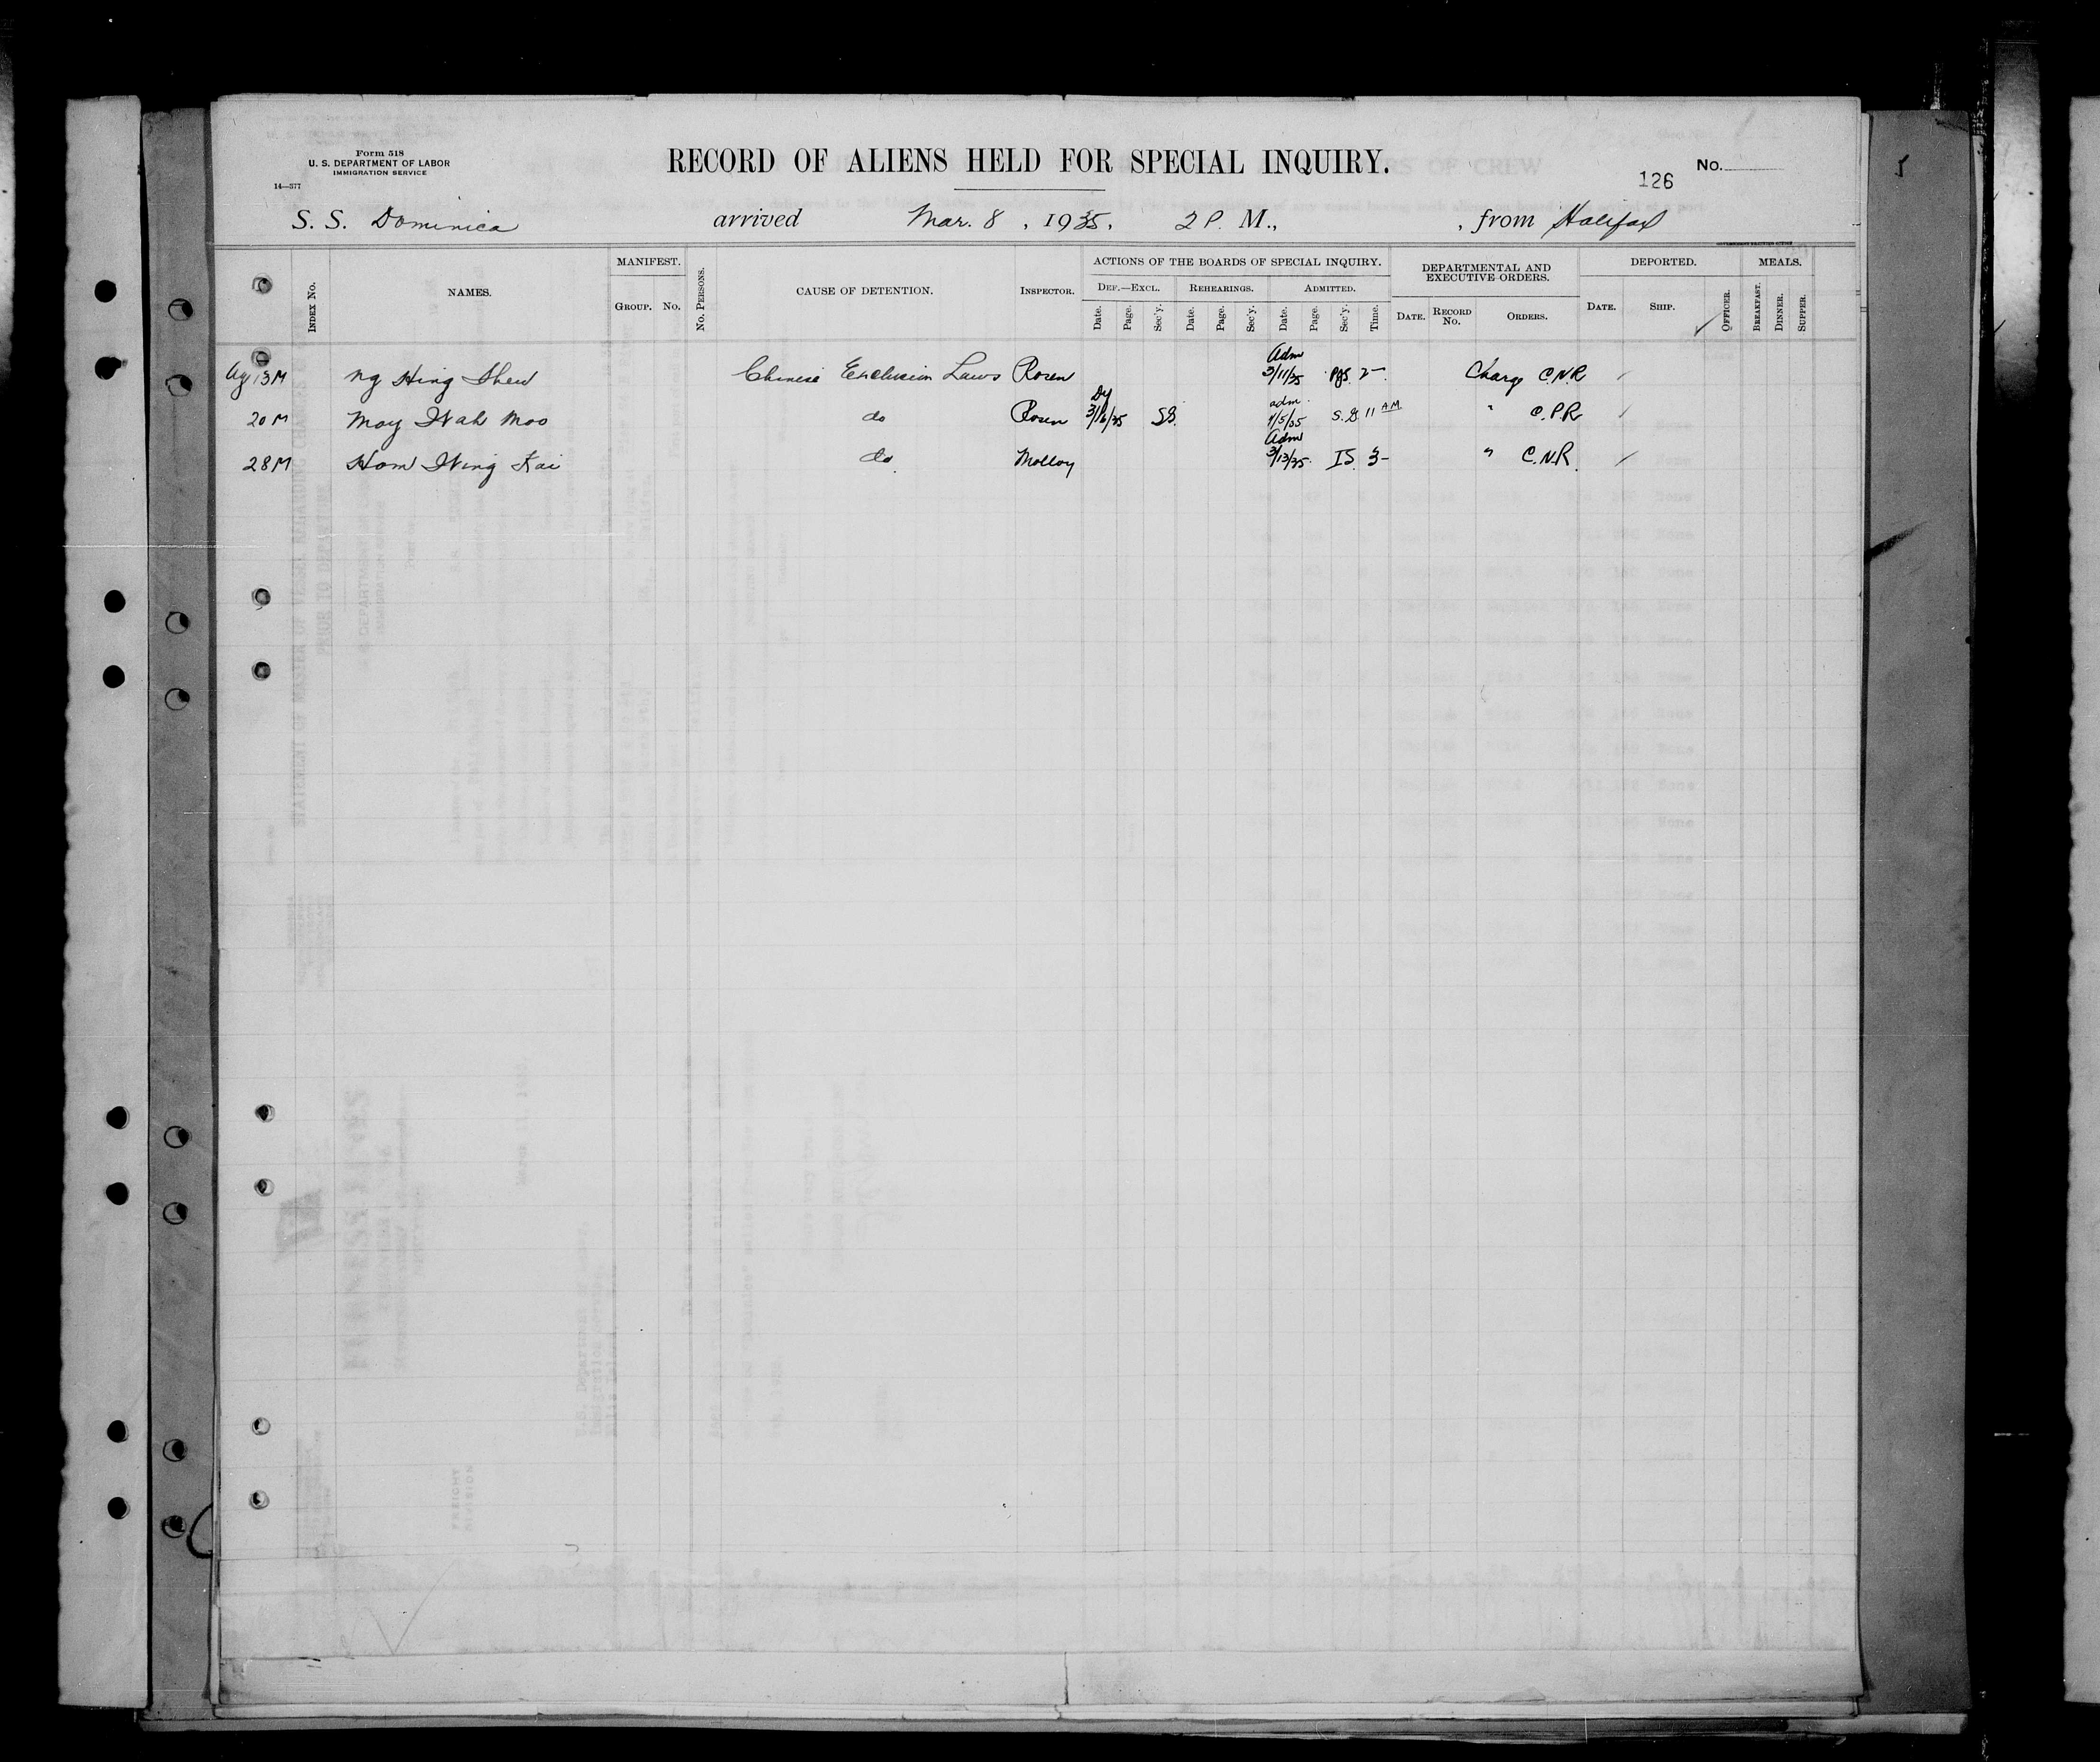 Form 518
U. S. DEPARTMENT OF LABOR
IMMIGRATION SERVICE
14—577
RECORD OF ALIENS HELD FOR SPECIAL INQUIRY.
126 No.
S. S. Dominica arrived Mar. 8, 1935, 2 P. M., , from Halifax
INDEX No. NAMES. MANIFEST. GROUP. No. No. PERSONS. CAUSE OF DETENTION. INSPECTOR. ACTIONS OF THE BOARDS OF SPECIAL INQUIRY. DEF.—EXCL. Date. Page. Sec'y. REHEARINGS. Date. Page. Sec'y. ADMITTED. Date. Page. Sec'y. Time. DEPARTMENTAL AND EXECUTIVE ORDERS. DATE. RECORD No. ORDERS. DEPORTED. DATE. SHIP. OFFICER. MEALS. BREAKFAST. DINNER. SUPPER.
13 M Ng Hing Shew Chinese Exclusion Laws Rosen Adm 3/11/35 2— Charge C.N.R
20 M Moy Wah Moo do Rosen 3/16/35 SG. adm. 4/5/35 S.G. 11 AM " C.P.R
28 M Hom Wing Kai do Molloy Adm 3/13/35 IS 3— " C.N.R.